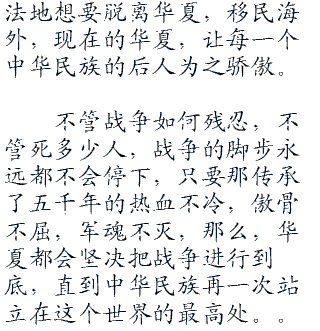 法地想要脱离华夏，移民海
外，现在的华夏，让每一个
中华民族的后人为之骄傲。
不管战争如何残忍，不
管死多少人，战争的脚步永
远都不会停下，只要那传承
了五千年的热血不冷，傲骨
不屈，军魂不灭，那么，华
夏都会坚决把战争进行到
底，直到中华民族再一次站
立在这个世界的最高处。。